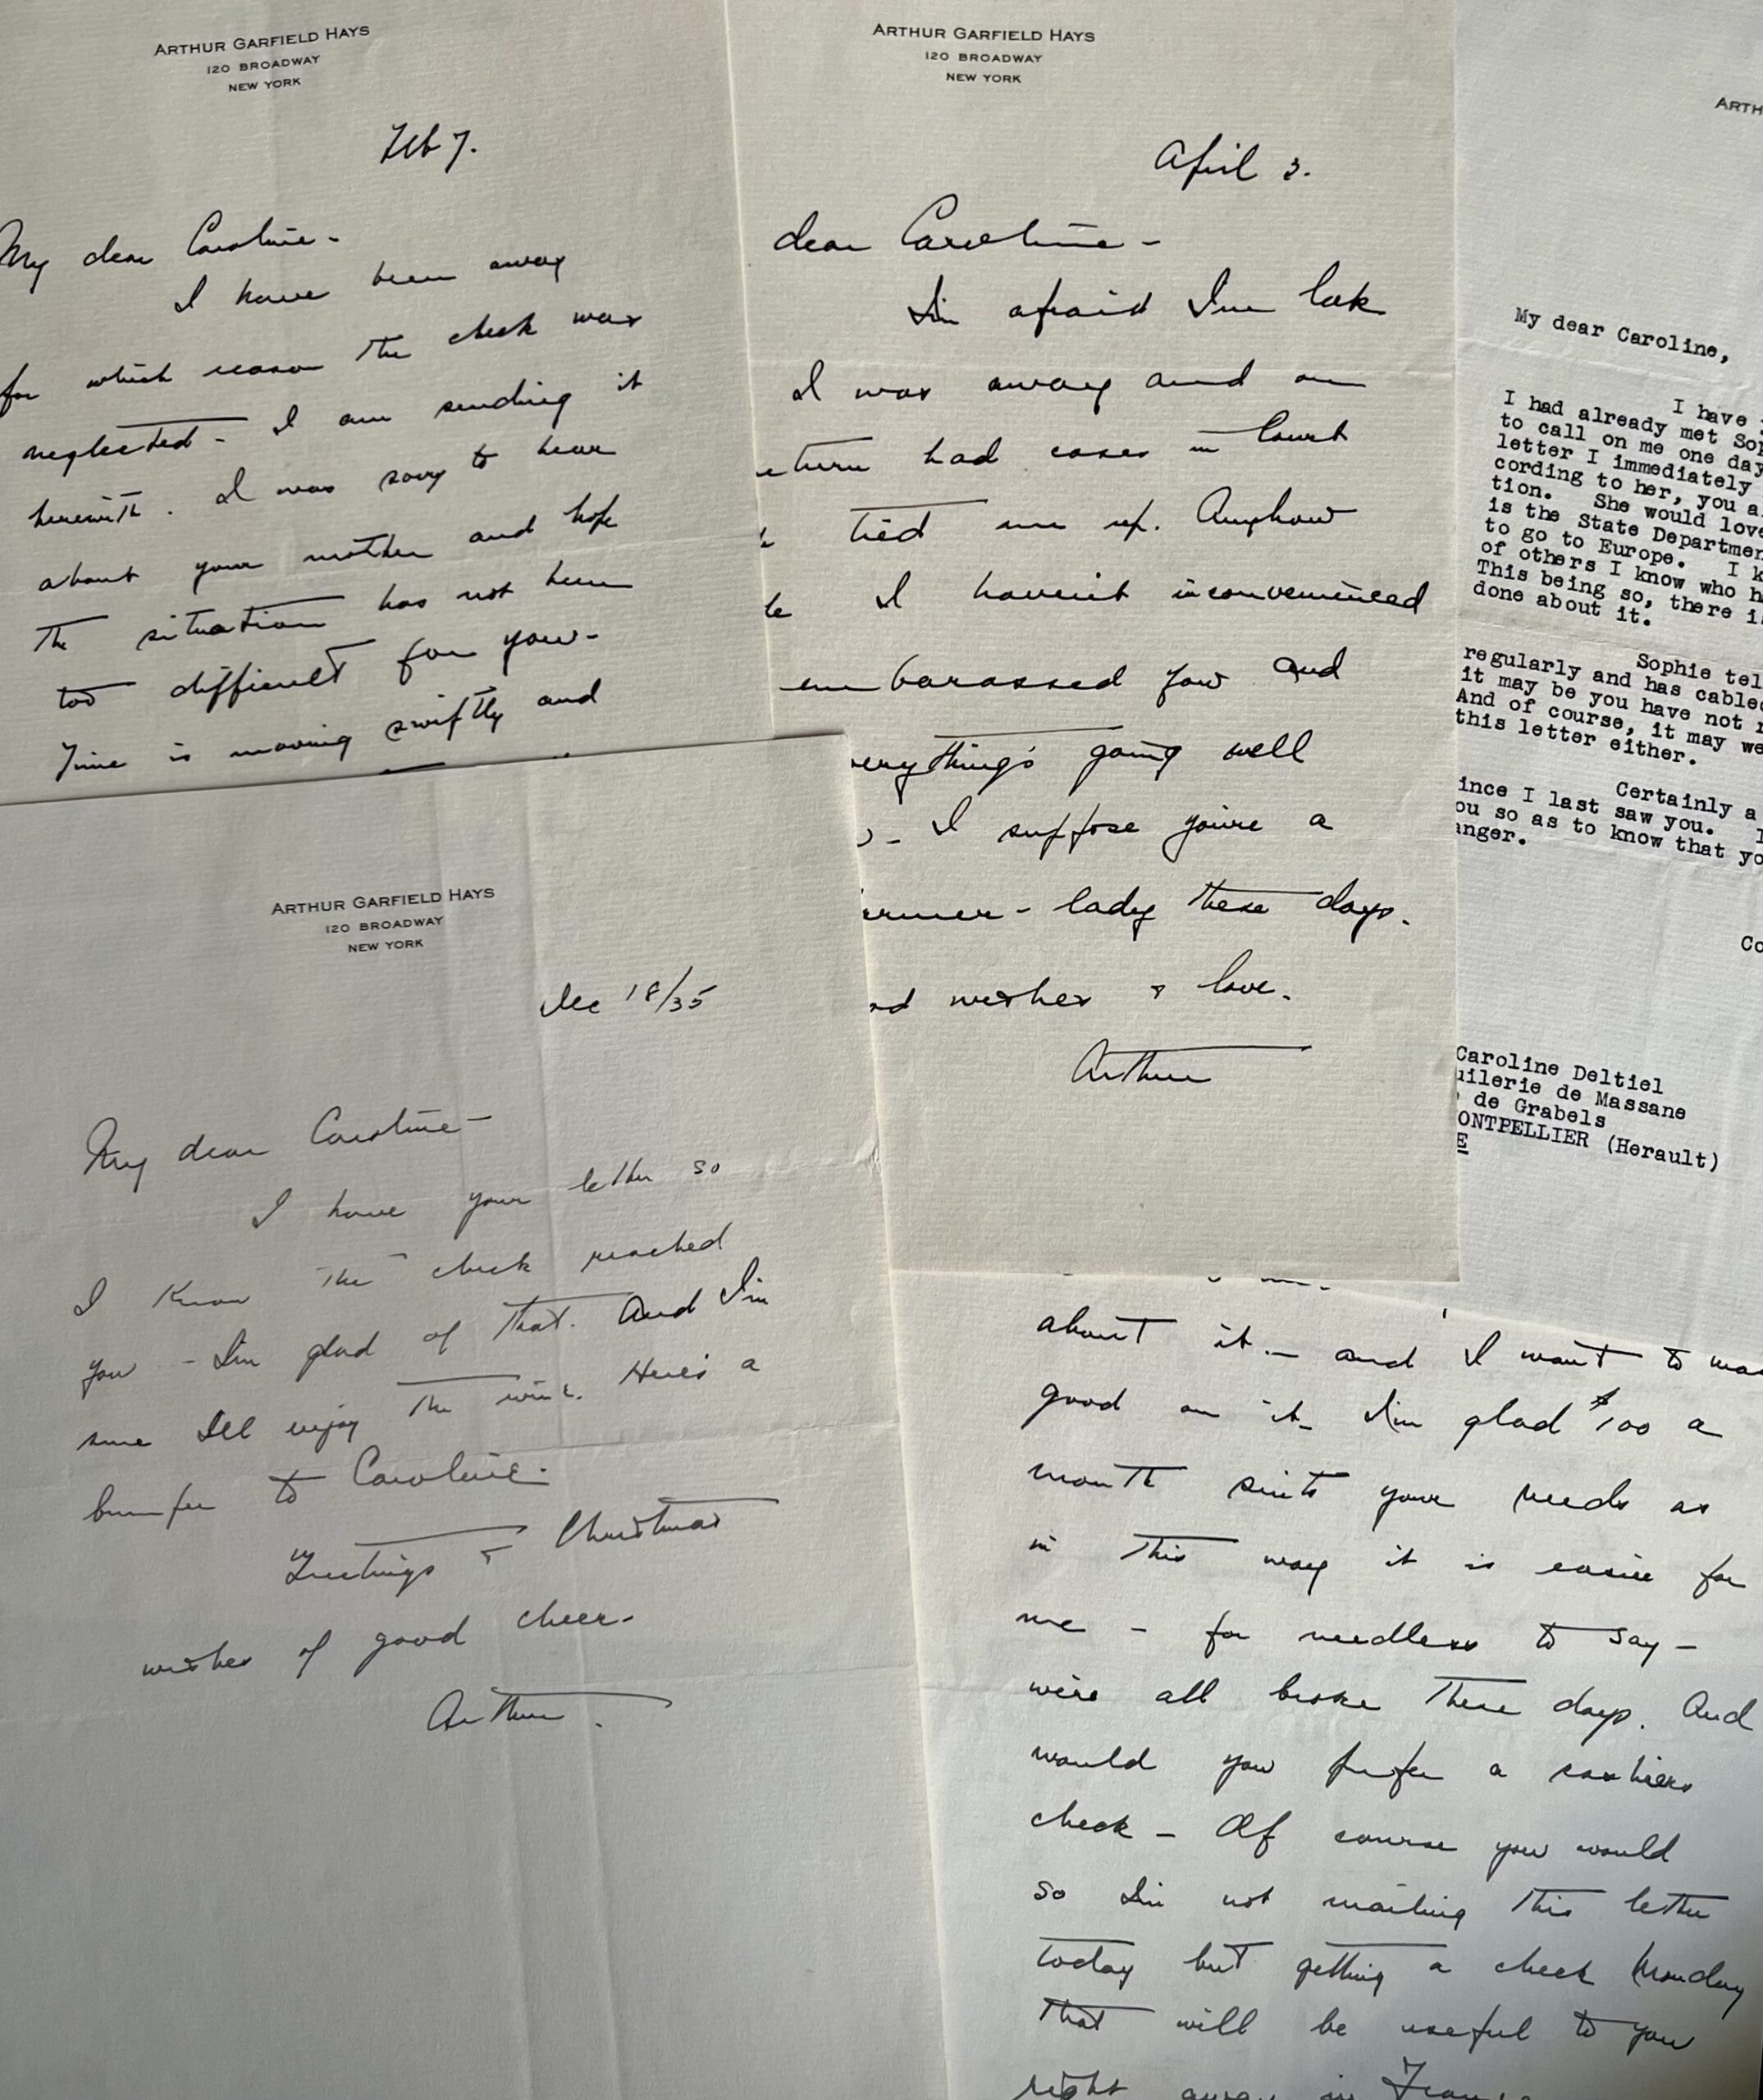 ARTHUR GARFIELD HAYS
120 BROADWAY
NEW YORK
Feb 7.
My dear Caroline -
I have been away
for which reason the check was
neglected - I am sending it
herewith. I was sorry to hear
about your mother and hope
the situation has not been
too difficult for you -
Time is moving swiftly and
ARTHUR GARFIELD HAYS
120 BROADWAY
NEW YORK
April 3.
dear Caroline -
I'm afraid I'm late
I was away and on
eturn had cases in court
tied me up. Anyhow
I haven't inconvenienced
embarassed you and
verything's going well
I suppose you're a
armer-lady these days.
od wishes & love.
Arthur
ARTH
My dear Caroline,
I have
I had already met Sop
to call on me one day
letter I immediately
cording to her, you a
tion. She would love
is the State Departmen
to go to Europe. I k
of others I know who h
This being so, there i
done about it.
Sophie tel
regularly and has cabled
it may be you have not r
And of course, it may we
this letter either.
Certainly a
ince I last saw you. I
ou so as to know that yo
anger.
Co
Caroline Deltiel
uilerie de Massane
de Grabels
ONTPELLIER (Herault)
E
ARTHUR GARFIELD HAYS
120 BROADWAY
NEW YORK
Dec 18/35
My dear Caroline -
I have your letter so
I know the check reached
you - I'm glad of that. And I'm
sure I'll enjoy the wine. Here's a
bumper to Caroline.
Greetings & Christmas
wishes of good cheer -
Arthur.
about it - and I want to ma
good on it. I'm glad $100 a
month suits your needs as
in this way it is easier for
me - for needless to say -
we're all broke these days. And
would you prefer a cashiers
check - Of course you would
so I'm not mailing this letter
today but getting a check Monday
that will be useful to you
right away in France